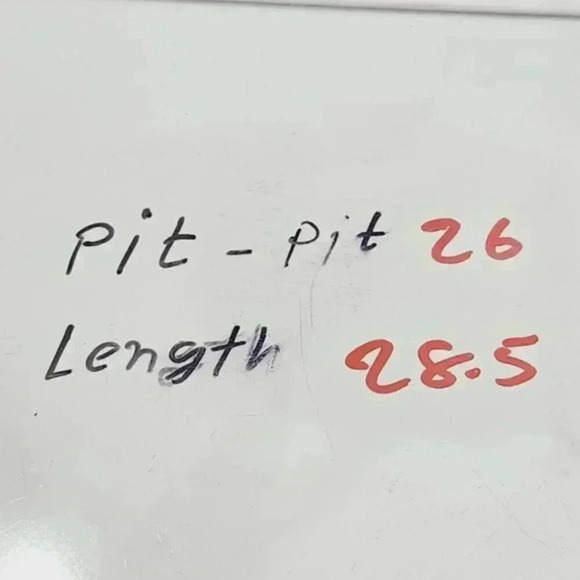 Pit - Pit 26
Length 28.5